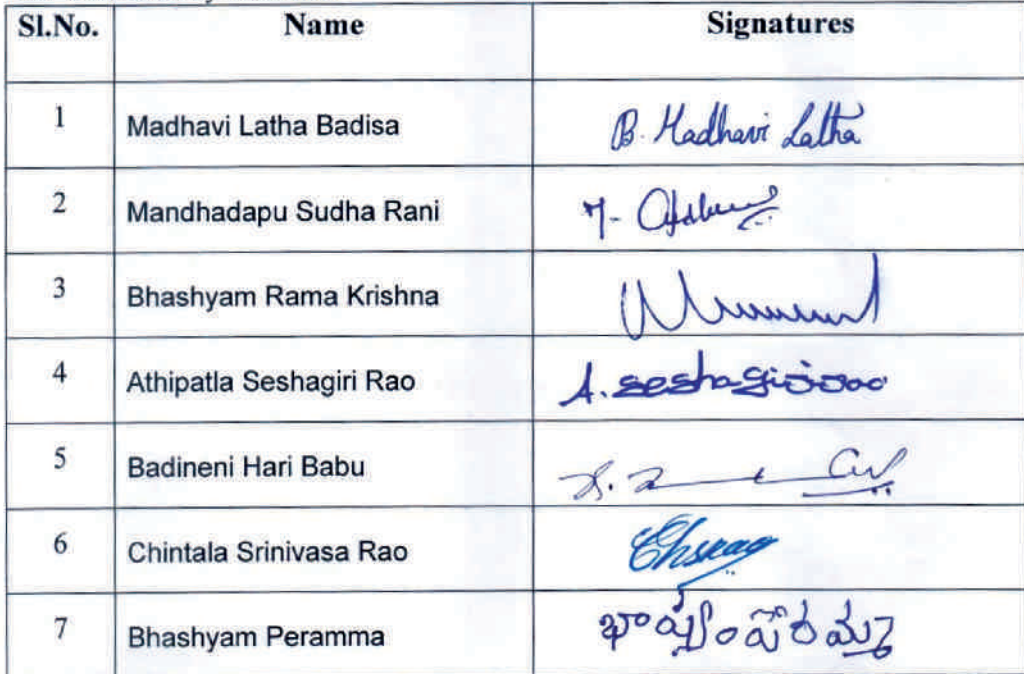 Sl.No. Name Signatures
1 Madhavi Latha Badisa B. Madhavi Latha
2 Mandhadapu Sudha Rani
3 Bhashyam Rama Krishna
4 Athipatla Seshagiri Rao A. Seshagirirao
5 Badineni Hari Babu
6 Chintala Srinivasa Rao Chsrao
7 Bhashyam Peramma భాష్యం పేరమ్మ